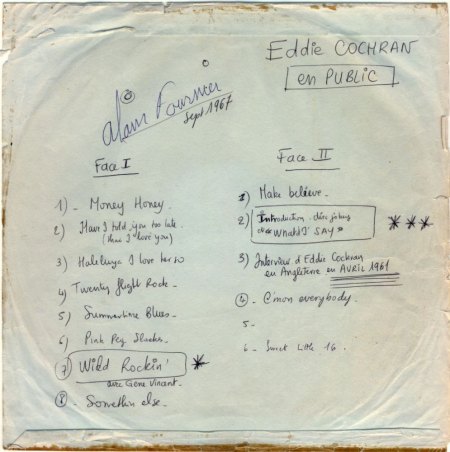 Eddie COCHRAN
en PUBLIC
Alain Fournier
Sept 1967
Face I
1) - Money Honey.
2) Have I told you too late.
(that I love you)
3) Haleluya I love her so
4) Twenty flight Rock -
5) Summertime Blues -
6) Pink Peg Slacks -
7) Wild Rockin' *
avec Gene Vincent -
8 - Somethin else -
Face II
1) Make believe -
2) Introduction disc jockey
de "WHAHT I SAY" ***
3) Interview d'Eddie Cochran
en Angleterre en AVRIL 1961
4 - C'mon everybody -
5 -
6 - Sweet Little 16 -